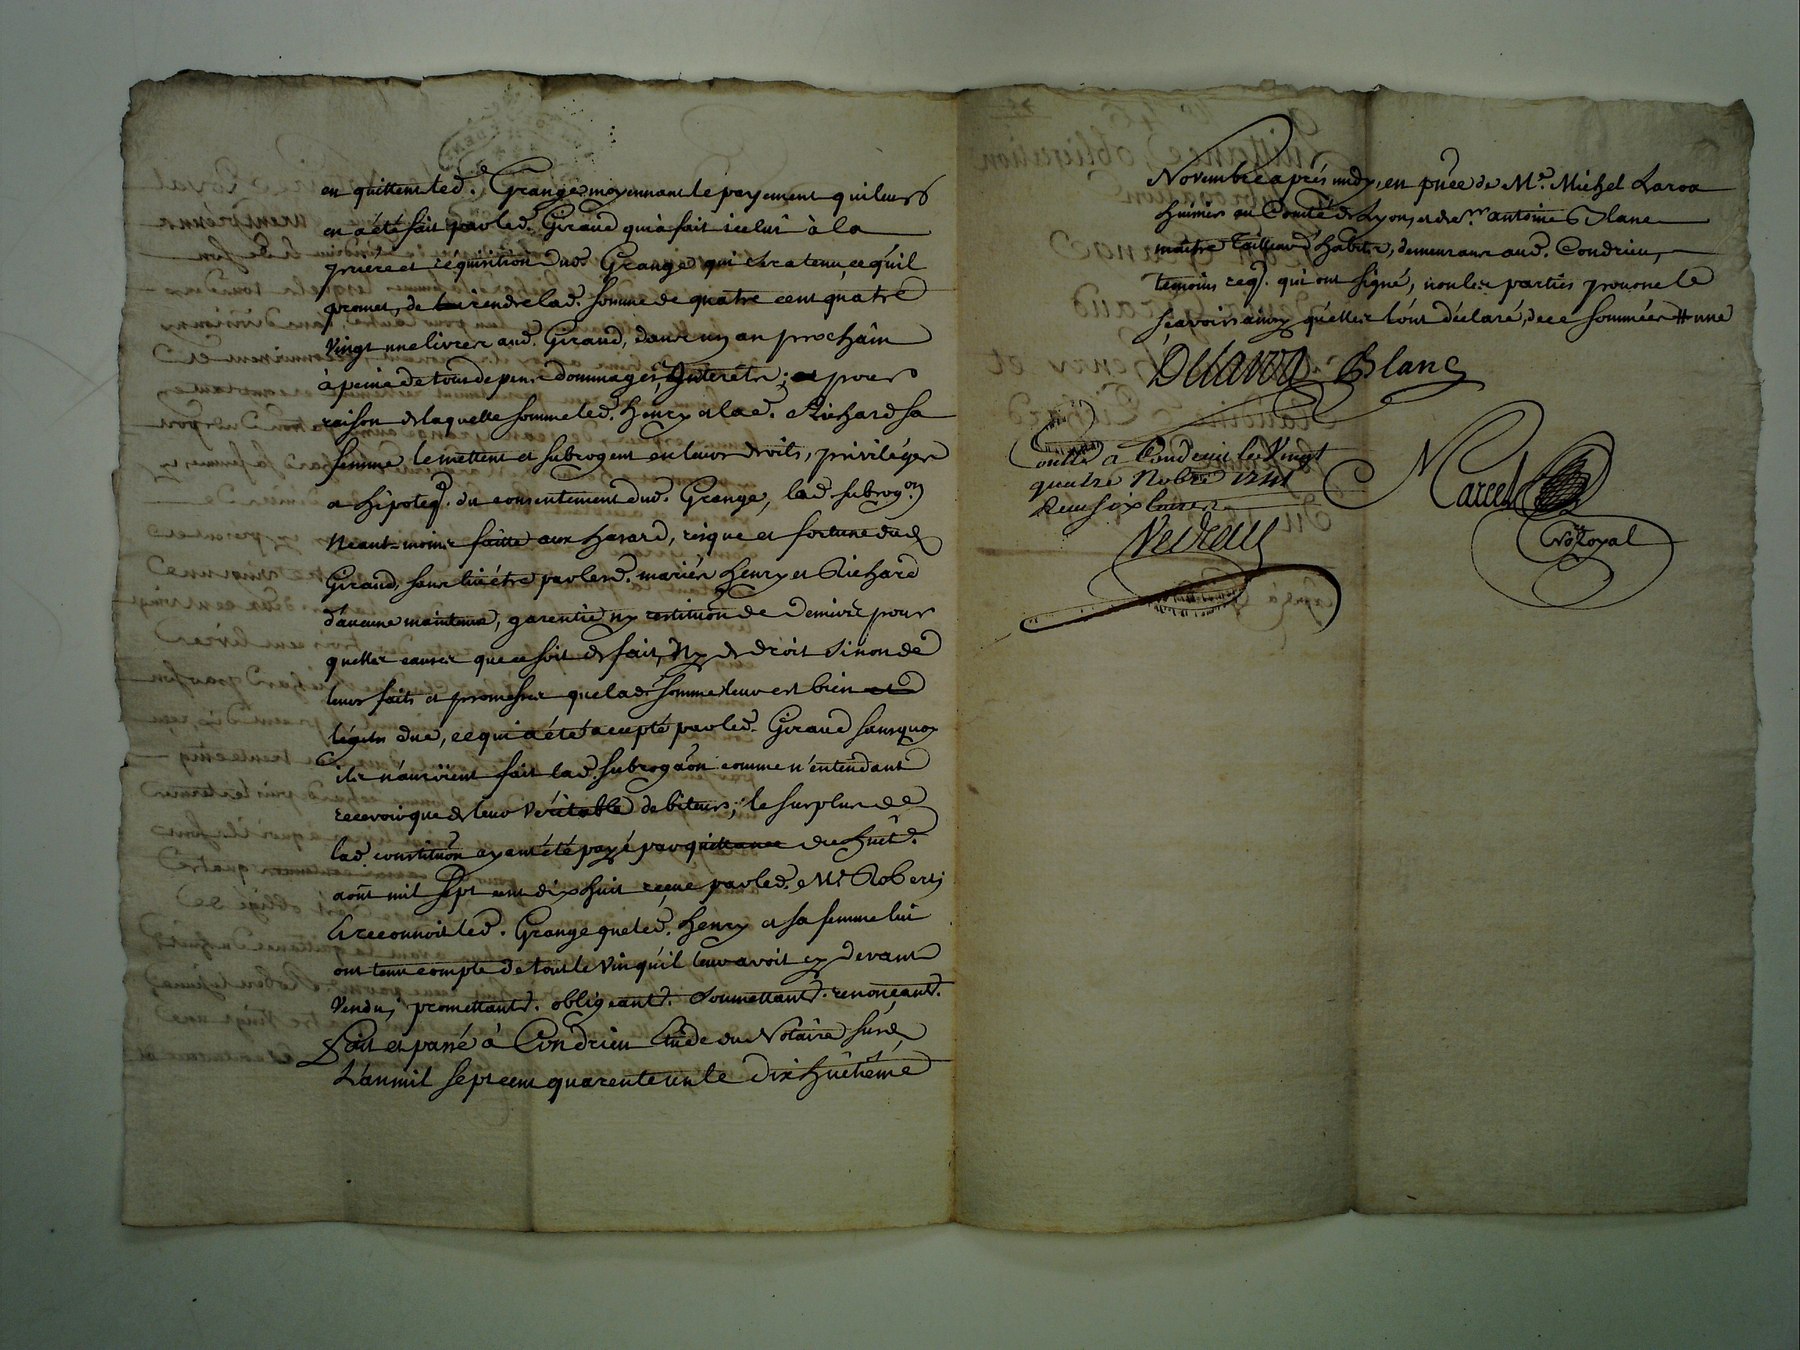 en quittent led. Grange moyennant le payement qui leurs
en a été fait par led. Giraud qui a fait icelui à la
priere et requisition dud. Grange qui sera tenu, ce qu'il
promet, de rendre lad. somme de quatre cent quatre
vingt une livres aud. Giraud, dans un an prochain
à peine de tous depens dommages, interets; et pour
raison de laquelle somme led. Henry et lad. Richard sa
femme le mettent et subrogent en leurs droits, privilèges
et hipoteq. du consentement dud. Grange, lad. subrogon
Neant-moins faitte aux hasard, risque et fortune dud.
Giraud, sans lui être par lesd. mariés Henry et Richard
d'aucune maintenue, garentie ny restitution de deniers pour
quelles causes que ce soit de fait, ny de droit sinon de
leurs faits et promesses que lad. somme leur est bien et
légite. due, ce qui a été accepté par led. Giraud sans quoy
ils n'auroient fait lad. subrogaon comme n'entendant
recevoir que de leur véritable debiteurs; le surplus de
lad. constituon ayant été payé par quittance du huit
août mil sept cent dix huit reçue par led. Me Roberts
Et reconnoit led. Grange que led. Henry et sa femme lui
ont tenu compte de tout le vin qu'il leur avoit cy devant
vendu; promettant. obligeant. soumettant. renonçant.
Fait et passé à Condrieu Etude du Notaire susd.
L'an mil sept cent quarente un le dix huitième
Novembre après midy, en pnce de Me. Michel Laroa
huissier au Comté de Lyon, et de sr. antoine Blanc
maître Tailleur d'habits, demeurans aud. Condrieu,
temoins req. qui ont signé, non les parties pour ne le
sçavoir ainsy qu'elles l'ont déclaré, de ce sommées une
Delaroa Blanc
Conllé a Condrieu le Vingt
quatre Nobre 1741
Reçu six livres
Marcel
Nore Royal